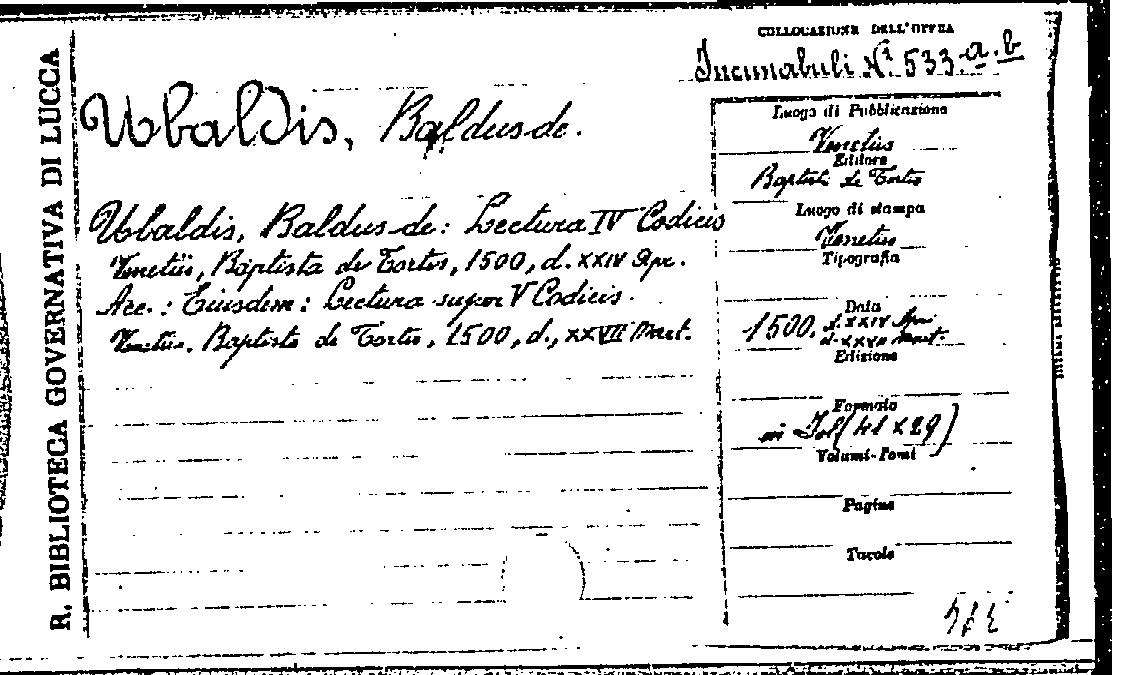 R. BIBLIOTECA GOVERNATIVA DI LUCCA
COLLOCAZIONE DELL'OPERA
Incunabuli N.i 533.a.b
Ubaldis, Baldus de.
Ubaldis, Baldus de: Lectura IV Codicis
Venetiis, Baptista de Tortis, 1500, d. XXIV Apr.
Acc.: Eiusdem: Lectura super V Codicis.
Venetiis. Baptista de Tortis, 1500, d., XXVII Mart.
Luogo di Pubblicazione
Venetiis
Editore
Baptista de Tortis
Luogo di stampa
Venetiis
Tipografia
Data
1500, d. XXIV Apri
d. XXVII Mart.
Edizione
Formato
in Fol (41 x 29)
Volumi-Tomi
Pagine
Tavole